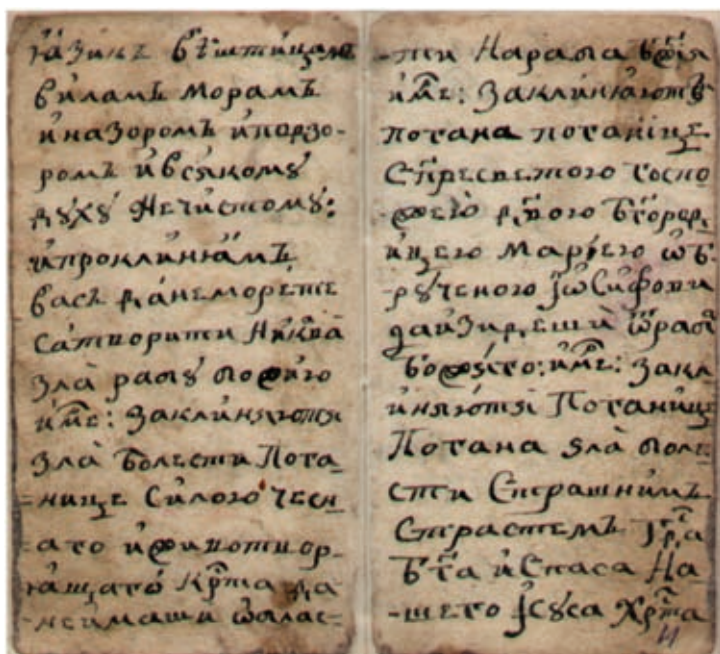 ꙗзикъ вѣштицамъ
виламъ морамъ
и назоромъ и подзо-
ромъ и всякомꙋ
дꙋхꙋ нечистомꙋ:
и проклинꙗмъ
васъ да не морете
сатворити никва
зла рабꙋ божию
име: заклинаютя
зла болести Пога-
нице Силою чесн-
аго и животвор-
ꙗщаго Крⷭта да
неимаши ѡблас-
-ти На раба бжия
име: Заклинаютъ
погана поганице
С пресветою госпо
жею двою Бгород
ицею Мариею ѡб-
рꙋченою Іѡсифови
да изидеши ѿ раба
божяго: име: закл
иняютя Поганице
Погана зла боле
сти Страшнимъ
Страстемъ Гⷭда
Бга и Спаса На
-шего Ісꙋса Хрⷭта